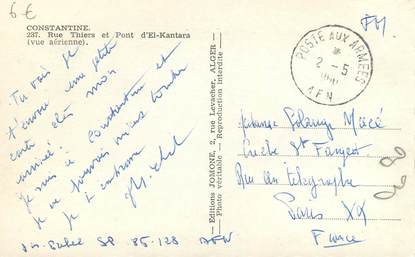 6€
CONSTANTINE.
237. Rue Thiers et Pont d'El-Kantara
(vue aérienne).
Tu vois je
t'envoie une petite
carte dès mon
arrivée.
Je suis à Constantine et
je ne pouvais mieux tomber
Je t'embrasse
SP 86.128 AFN
— Editions JOMONE, 2, rue Levacher, ALGER —
Photo véritable - Reproduction interdite
FM
POSTE AUX ARMEES
*
2-5
AFN
Solange Macé
Crèche St Fargeau
Rue du télégraphe
Paris XX
France